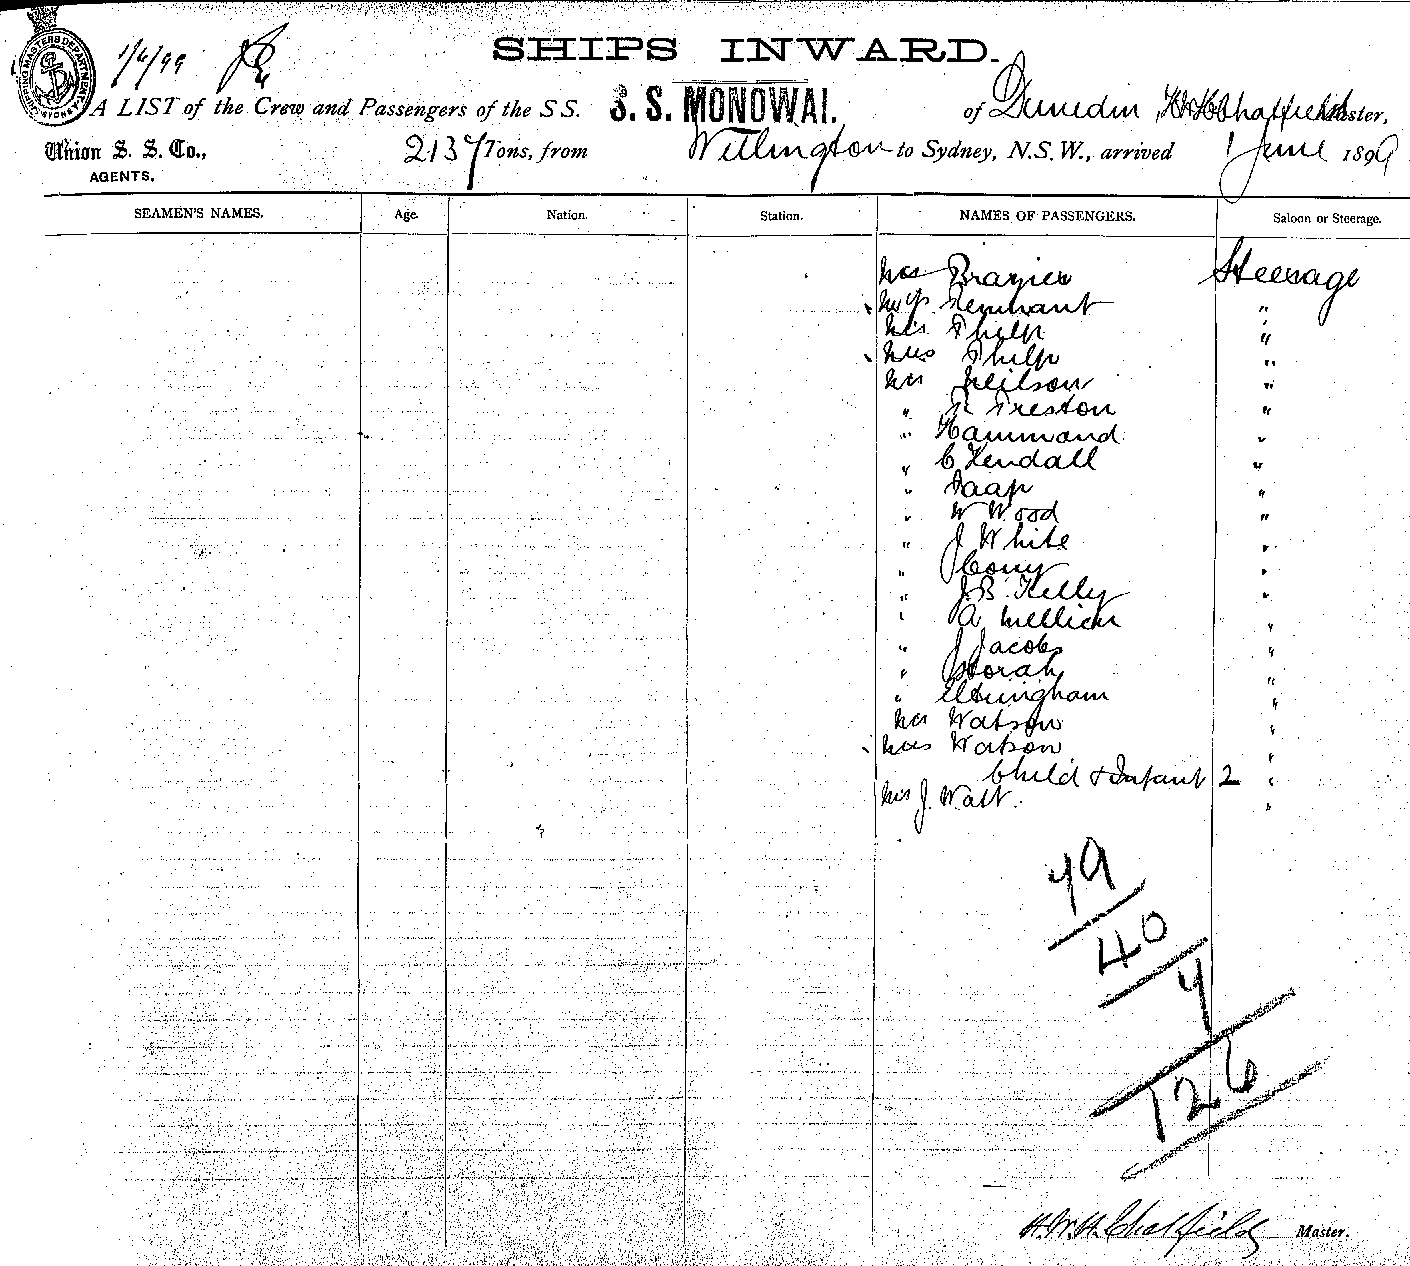 1/6/99
SHIPS INWARD.
A LIST of the Crew and Passengers of the S S. S. S. MONOWAI. of Dunedin, Chatfield Master,
Union S. S. Co., 2137 Tons, from Wellington to Sydney, N.S.W., arrived 1 June 1899
AGENTS.
SEAMEN'S NAMES. Age. Nation. Station. NAMES OF PASSENGERS. Saloon or Steerage.
Mr Brazier Steerage
Remnant "
Mr Philp "
Mrs Philp "
Mr Neilson "
" Preston "
" Hammond "
" C Kendall "
" Paap "
" W Wood "
" J White "
" "
" J.B. Kelly "
" A "
" J Jacobs "
" "
" "
Mr Watson "
Mrs Watson "
Child & Infant 2 "
J. Watt. "
79
40
7
126
H.W.H. Chatfield Master.